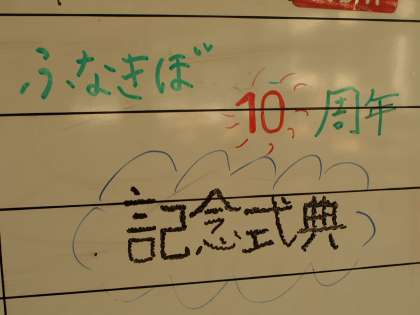 ふなきぼ
10周年
記念式典